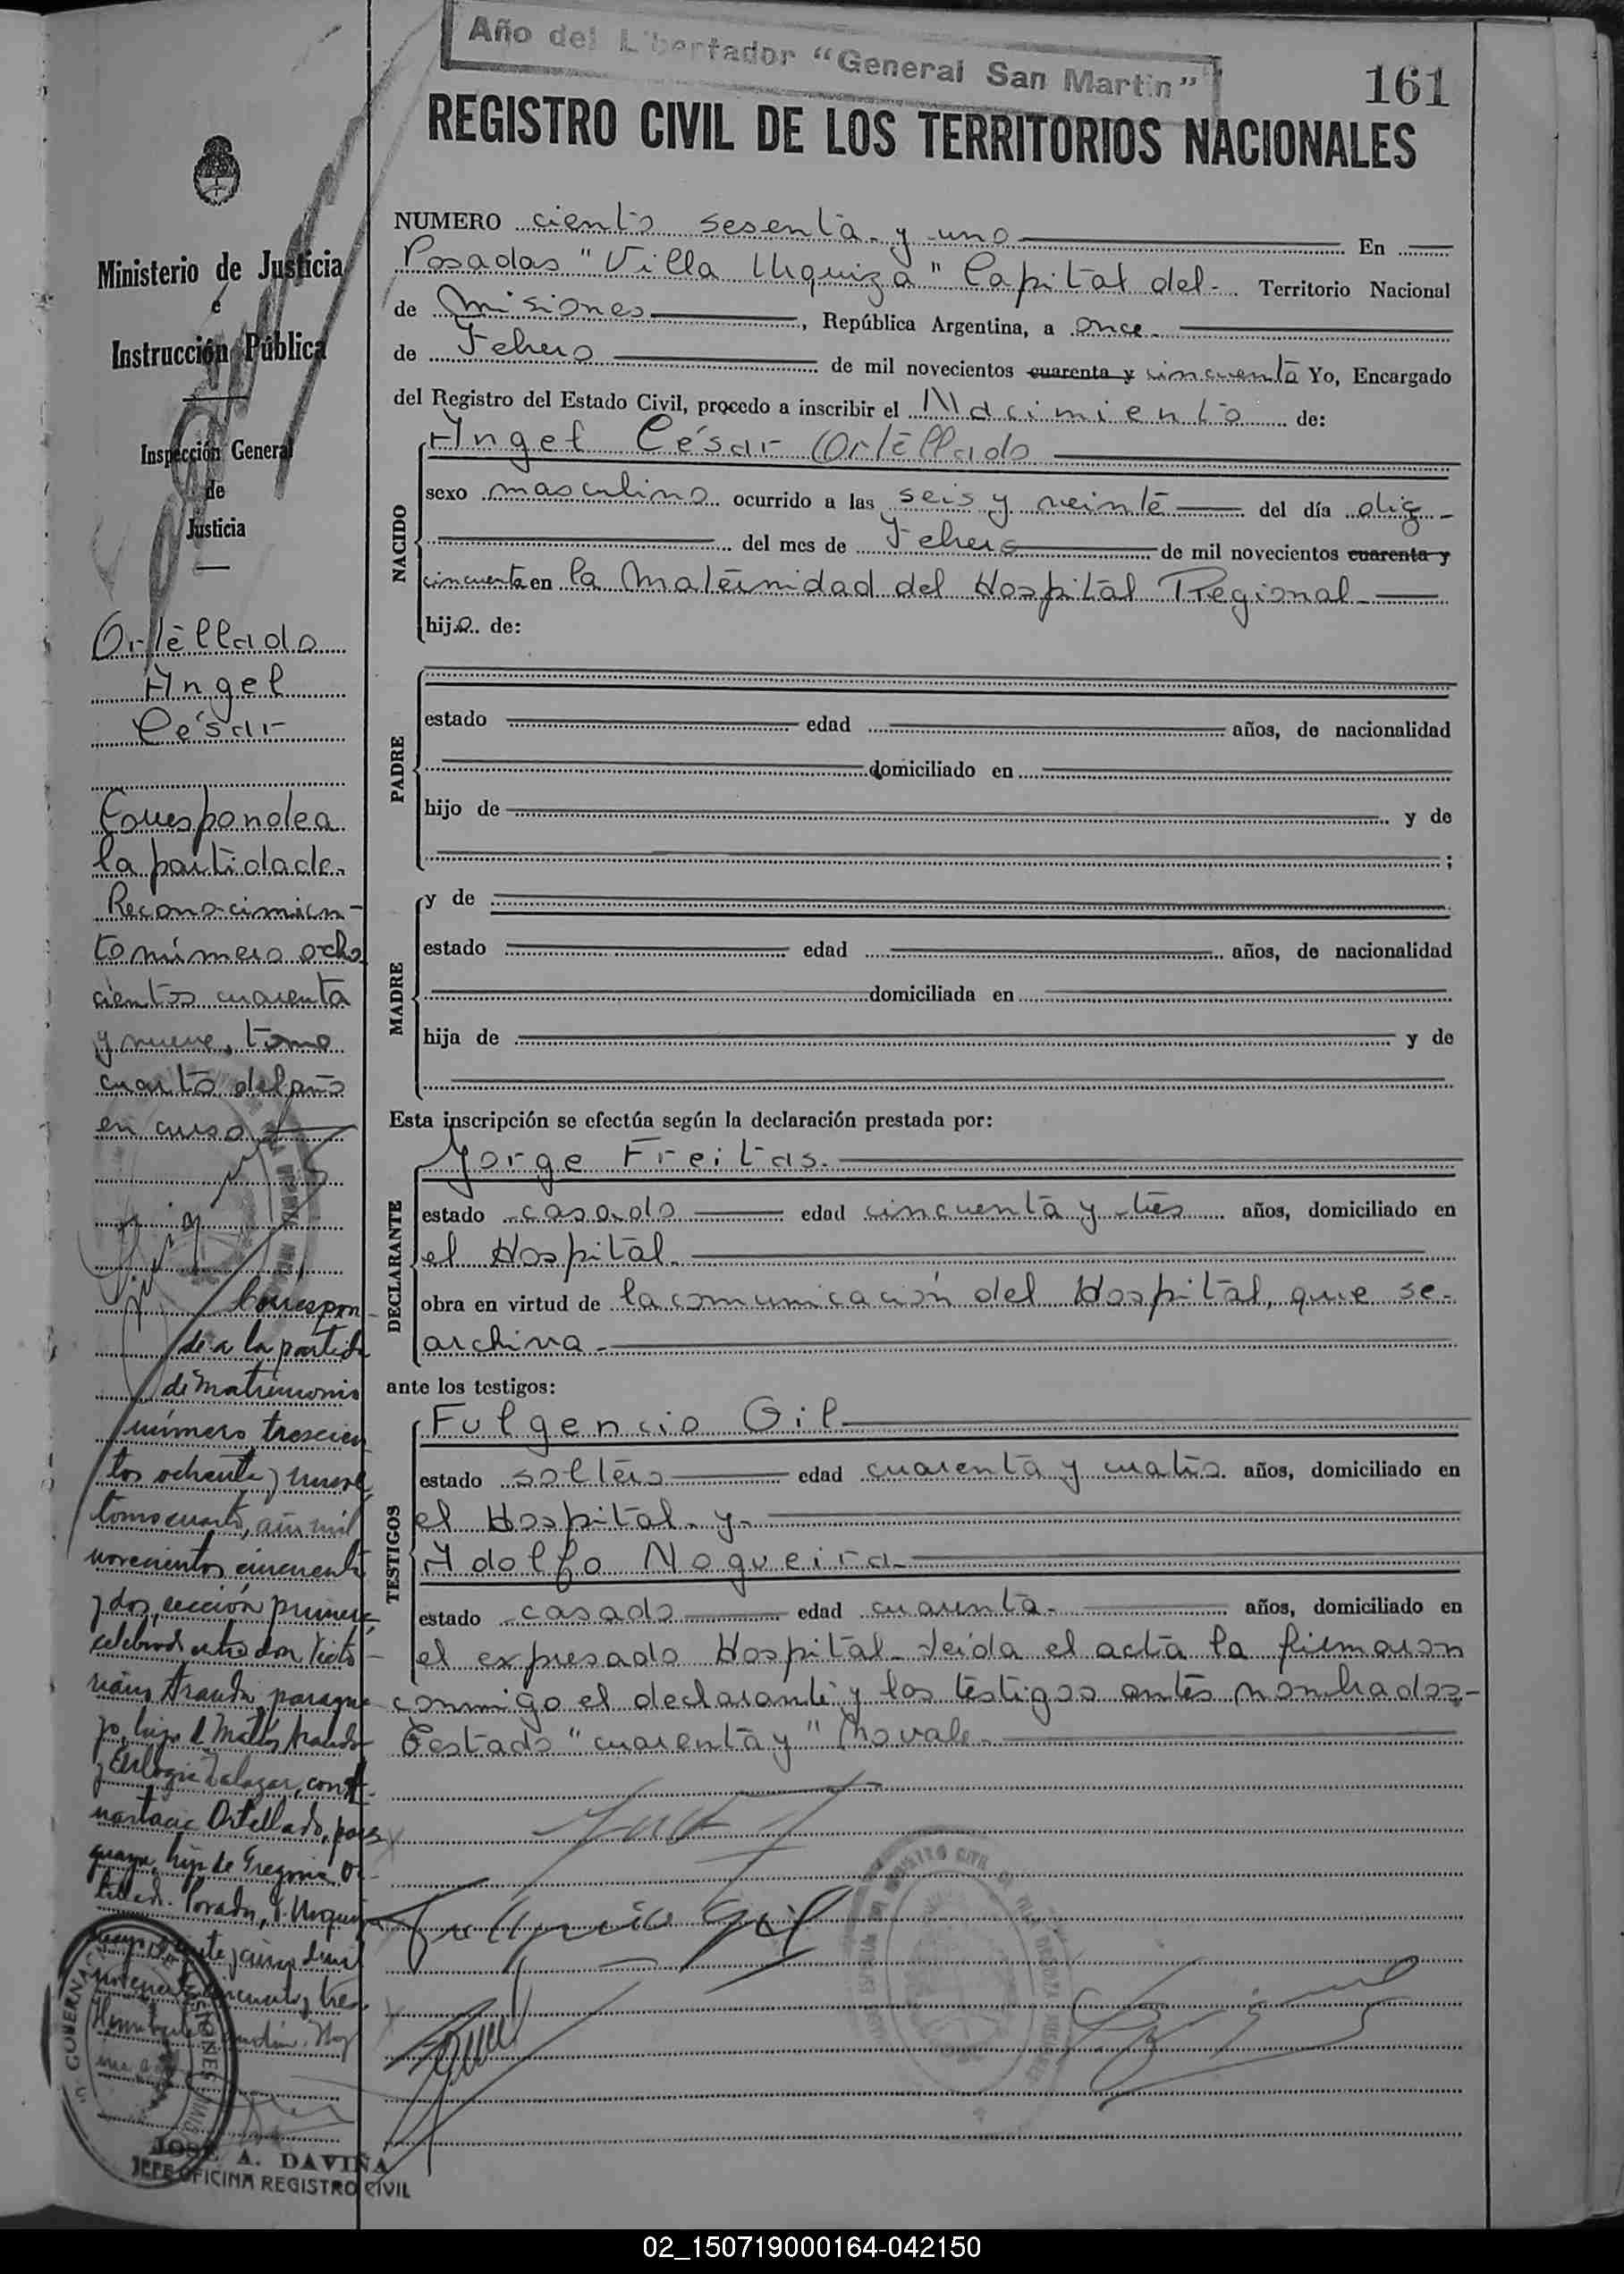 Año del Libertador "General San Martín"
161
REGISTRO CIVIL DE LOS TERRITORIOS NACIONALES
Ministerio de Justicia
e
Instrucción Pública
Inspección General
de
Justicia
Ortellado
Angel
César
Corresponde a
la partida de
Reconocimien-
to número ocho
cientos cuarenta
y nueve, tomo
cuarto del año
en curso
Correspon-
de a la partida
de Matrimonio
número trescien
tos ochenta y nueve
tomo cuarto, año mil
novecientos cincuenta
y dos, sección primera
celebrado entre don Victo-
riano Aranda paragua-
yo, hijo de Matías Aranda
y Eulogia Salazar, con A-
nastacia Ortellado, para
guaya, hija de Gregoria Or-
tellado. Posadas, V. Urquiza
Mayo veinte y cinco de mil
novecientos cincuenta y tres
JOSE A. DAVIÑA
JEFE OFICINA REGISTRO CIVIL
NUMERO ciento sesenta y uno En
Posadas "Villa Urquiza" Capital del Territorio Nacional
de Misiones, República Argentina, a once
de Febrero de mil novecientos cuarenta y cincuenta Yo, Encargado
del Registro del Estado Civil, procedo a inscribir el Nacimiento de:
NACIDO
Angel César Ortellado
sexo masculino ocurrido a las seis y veinte del día diez
del mes de Febrero de mil novecientos cuarenta y
cincuenta en la Maternidad del Hospital Regional
hijo de:
PADRE
estado edad años, de nacionalidad
domiciliado en
hijo de y de
;
MADRE
y de
estado edad años, de nacionalidad
domiciliada en
hija de y de
Esta inscripción se efectúa según la declaración prestada por:
DECLARANTE
Jorge Freitas.
estado casado edad cincuenta y tres años, domiciliado en
el Hospital.
obra en virtud de la comunicación del Hospital, que se
archiva
ante los testigos:
TESTIGOS
Fulgencio Gil
estado soltero edad cuarenta y cuatro años, domiciliado en
el Hospital y
Adolfo Nogueira
estado casado edad cuarenta años, domiciliado en
el expresado Hospital. Leída el acta la firmaron
conmigo el declarante y los testigos antes nombrados-
Testado "cuarenta y" No vale.
02_150719000164-042150